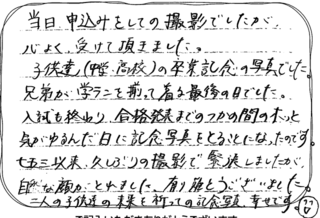 当日、申込みをしての撮影でしたが、
心よく、受けて頂きました。
子供達(中学・高校)の卒業記念の写真でした。
兄弟が、学ランを揃って着る最後の日でした。
入試も終わり、合格発表までのつかの間のホッと
気がゆるんだ日に記念写真をとることになったのです。
七五三以来、久しぶりの撮影で緊張しましたが、
自然な顔がとれました。有り難とうございました。
二人の子供達の未来を祈っての記念写真、幸せです。